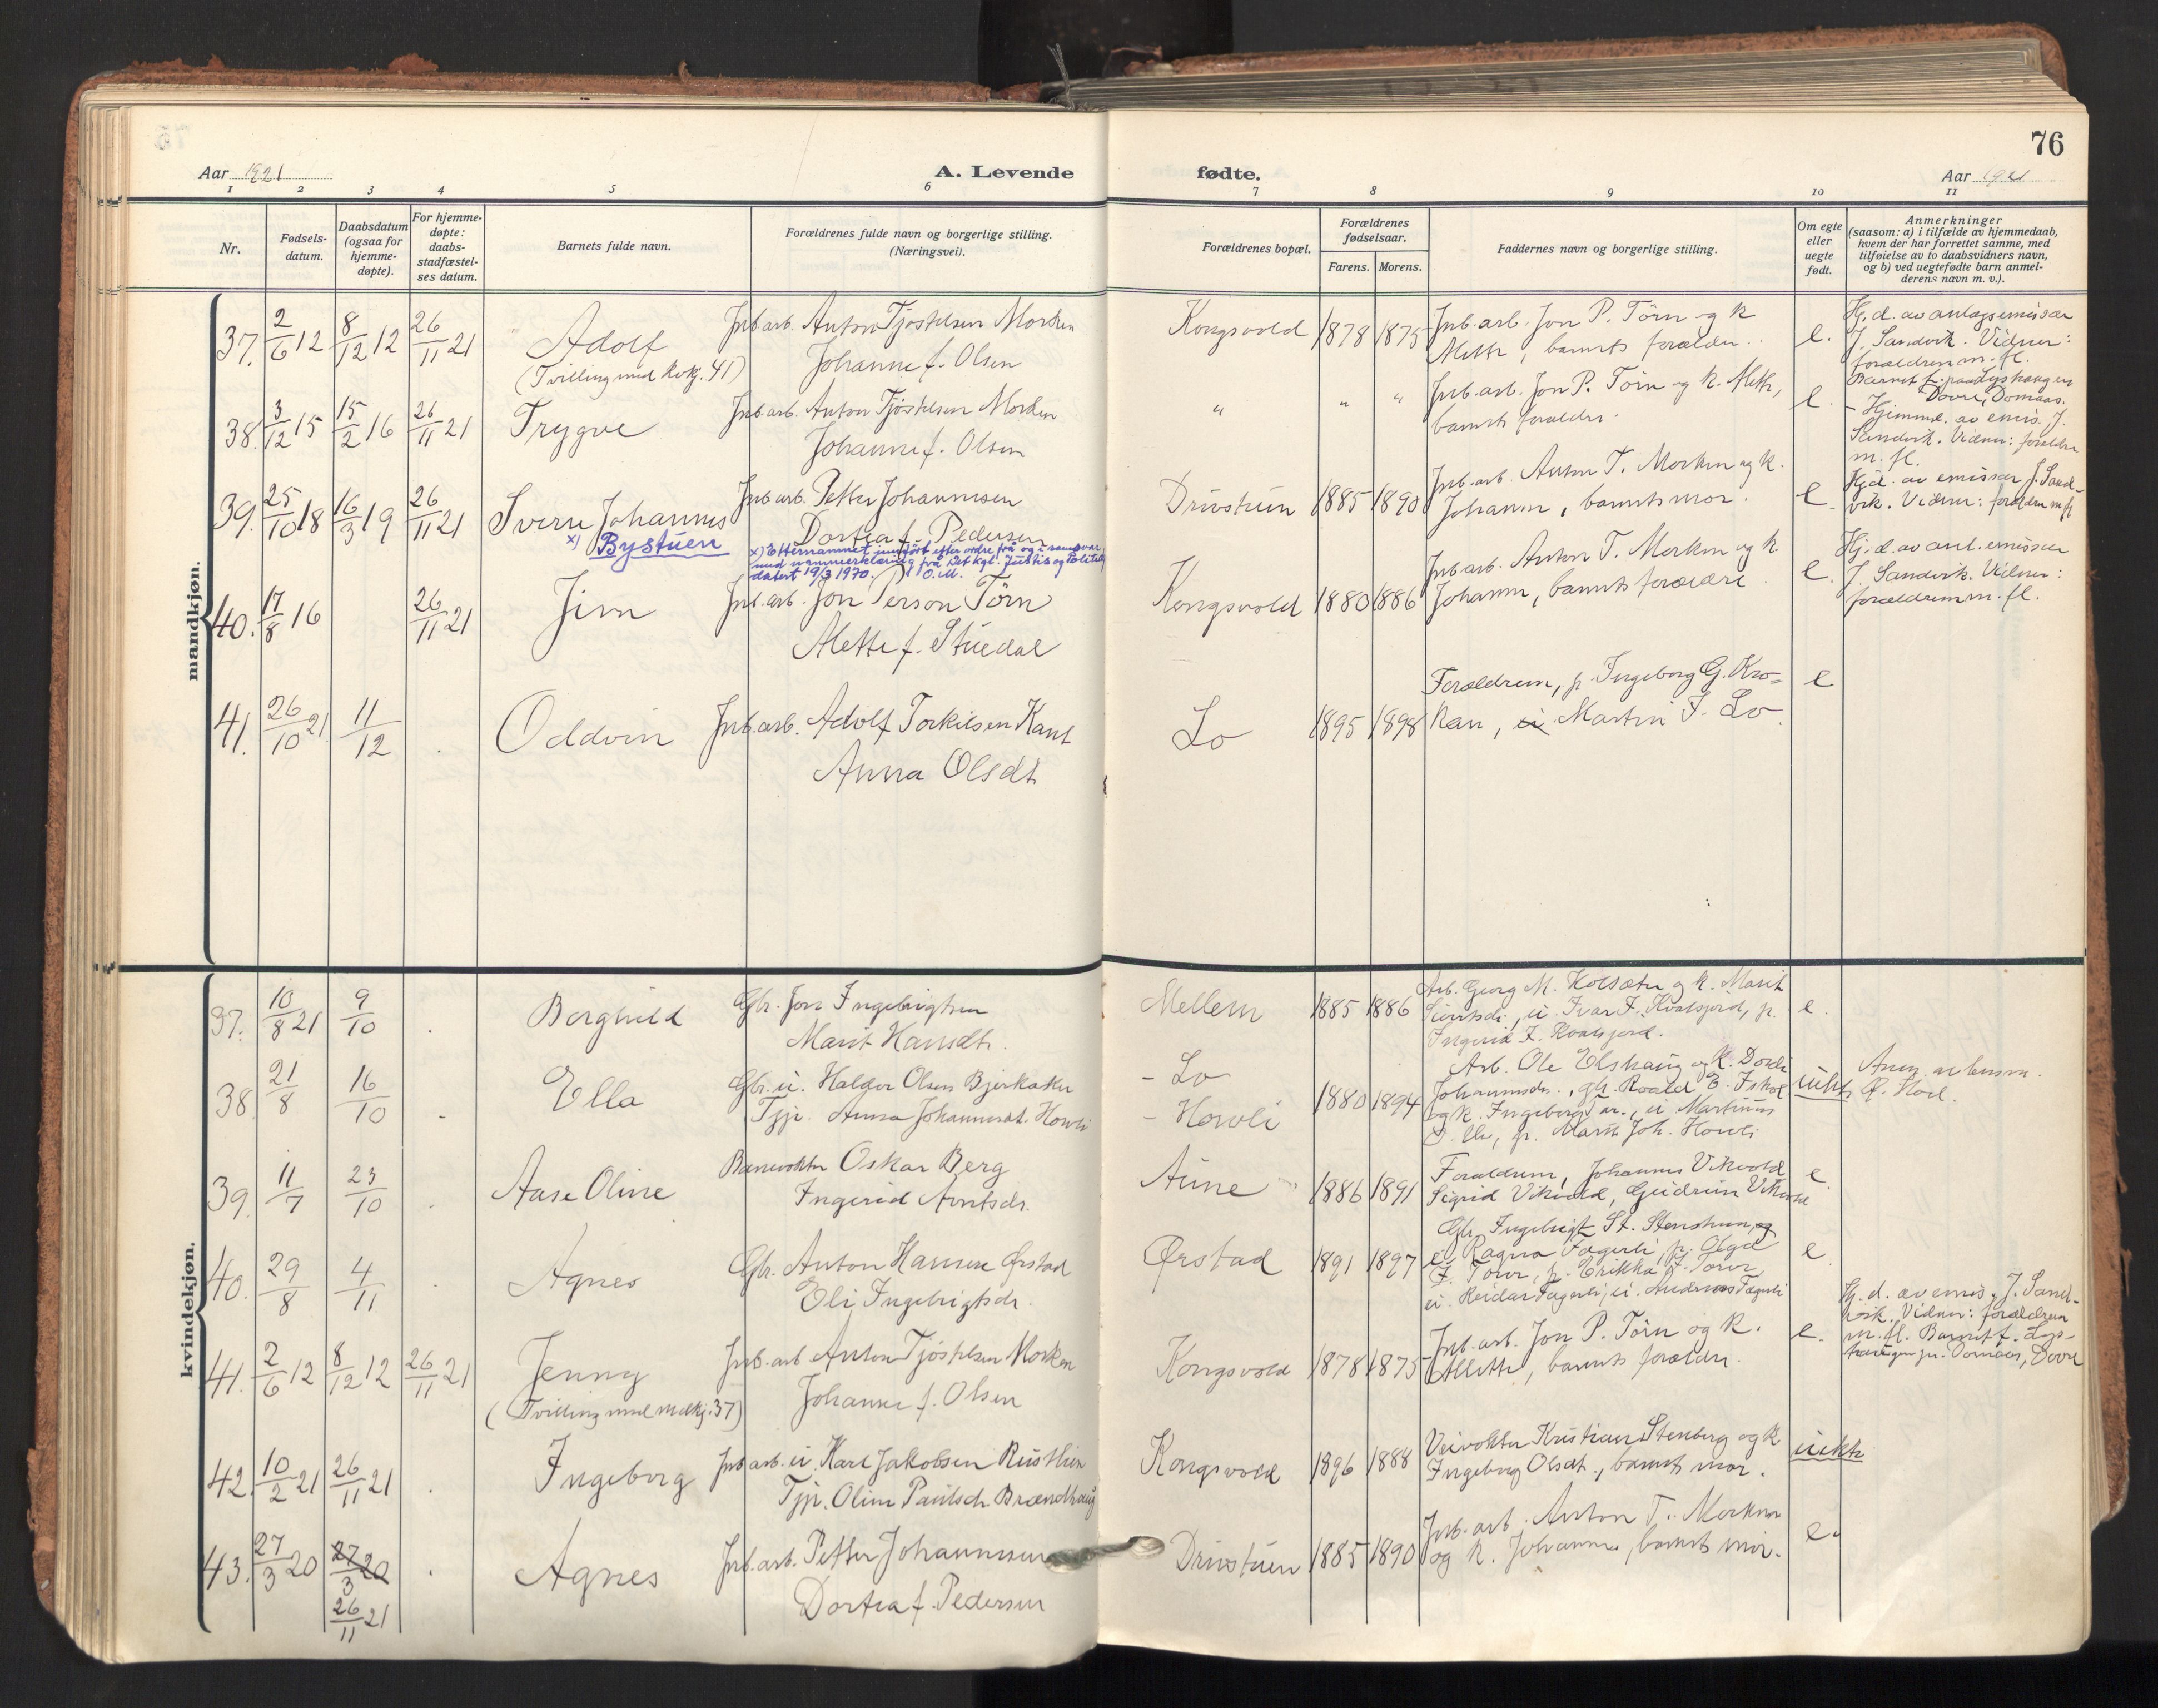 76
Aar 1921
A. Levende
fødte.
Aar 1921
1 2 3 4 5 6 7 8 9 10 11
Nr.
Fødsels-
datum.
Daabsdatum
(ogsaa for
hjemme-
døpte).
For hjemme-
døpte:
daabs-
stadfæstel-
ses datum.
Barnets fulde navn.
Forældrenes fulde navn og borgerlige stilling.
(Næringsvei).
Forældrenes bopæl.
Forældrenes
fødselsaar.
Farens. Morens.
Faddernes navn og borgerlige stilling.
Om egte
eller
uegte
født.
Anmerkninger
(saasom: a) i tilfælde av hjemmedaab,
hvem der har forrettet samme, med
tilføielse av to daabsvidners navn,
og b) ved uegtefødte barn anmel-
derens navn m. v.).
mandkjøn.
37. 2/6 12 8/12 12 26/11 21
Adolf
(Tvilling med kvkj. 41)
Jnb.arb. Anton Tjøstelsen Morken
Johanne f. Olsen
Kongsvold 1878 1875
Jnb.arb. Jon P. Törn og k
Alette, barnets forældre.
e.
Hj.d. av anlægsemissær
J. Sandvik. Vidner:
forældrene m. fl.
Barnet f. paa Lyshaugen
Dovre, Domaas.
38. 3/12 15 15/2 16 26/11 21
Trygve
Jnb.arb. Anton Tjöstelsen Morken
Johanne f. Olsen
" " "
Jnb.arb. Jon P. Törn og k. Alette,
barnets forældre.
e.
- Hjemmd. av emis. J.
Sandvik. Vidner: forældre
m. fl.
39. 25/10 18 16/3 19 26/11 21
Sverre Johannes
x) Bystuen
Jnb.arb. Petter Johannesen
Dortea f. Pedersen
x) Etternamnet innført etter ordre frå og i samsvar
med namneerklæring frå Det Kgl. Justis og Politid.
datert 19/3 1970. O.M.
Drivstuen 1885 1890
Jnb.arb. Anton T. Morken og k.
Johanne, barnets mor.
e
Hj.d. av emissær J. Sand-
vik. Vidner: forældre m fl
40. 17/8 16 26/11 21
Jim
Jnb.arb. Jon Person Törn
Alette f. Stuedal
Kongsvold 1880 1886
Jnb.arb. Anton T. Morken og k.
Johanne, barnets forældre.
e.
Hj.d. av anl. emissær
J. Sandvik. Vidner:
forældrene m. fl.
41. 26/10 21 11/12 .
Oddvin
Jnb.arb. Adolf Torkilsen Kant
Anna Olsdt
Lo 1895 1898
Forældrene, p. Ingeborg G. Kro-
kan, u Martin J. Lo.
e
kvindekjøn.
37. 10/8 21 9/10 .
Borghild
Gbr. Jon Ingebrigtsen
Marit Hansdtr.
Mellem 1885 1886
Arb. Georg M. Kolsæter og k. Marit
Sivertsdr., u. Ivar F. Kvalsjord, p.
Ingerid F. Kvalsjord.
e.
38. 21/8 16/10 .
Ella
Gbr. u. Haldor Olsen Bjerkaker
Tjp. Anna Johannesdt. Hovli
- Lo
- Hovli
1880 1894
Arb. Ole Elshaug og k. Dordi
Johannesdr., gbr. Roald E.
og k. Ingeborg
p. Marit Joh. Hovli
uekte
39. 11/7 23/10 .
Aase Oline
Banevokter Oskar Berg
Ingerid Arntsdr.
Aune 1886 1891
Forældrene, Johannes Vikvold
Sigrid Vikvold, Gudrun Vikvold
e.
40. 29/8 4/11 .
Agnes
Gbr. Anton Hansen Ørstad
Eli Ingebrigtsdr.
Ørstad 1891 1897
Gbr. Ingebrigt St. Stenshum, og
Ragna Fagerli, p. Olga
F. Torve, p. Erikka F. Torve,
u. Reidar Fagerli, u. Andreas Fagerli
e
41. 2/6 12 8/12 12 26/11 21
Jenny
(Tvilling med mdkj. 37)
Jnb.arb. Anton Tjöstelsen Morken
Johanne f. Olsen
Kongsvold 1878 1875
Jnb.arb. Jon P. Törn og k.
Alette, barnets forældre.
e.
Hj. d. av emis. J. Sand-
vik. Vidner: forældrene
m. fl. Barnet f. Lys-
haugen pr. Domaas, Dovre
42. 10/2 21 26/11 21 .
Ingeborg
Jnb.arb. u. Karl Jakobsen Rusthien
Tjp. Oline Paulsdr. Brændhaug
Kongsvold 1896 1888
Veivokter Kristian Stenberg og k
Ingeborg Olsdt., barnets mor.
uekte
43. 27/3 20 27/3 20 26/11 21 .
Agnes
Jnb.arb. Petter Johannessen
Dortea f. Pedersen
Drivstuen 1885 1890
Jnb.arb. Anton T. Morken
og k. Johanne, barnets mor.
e.